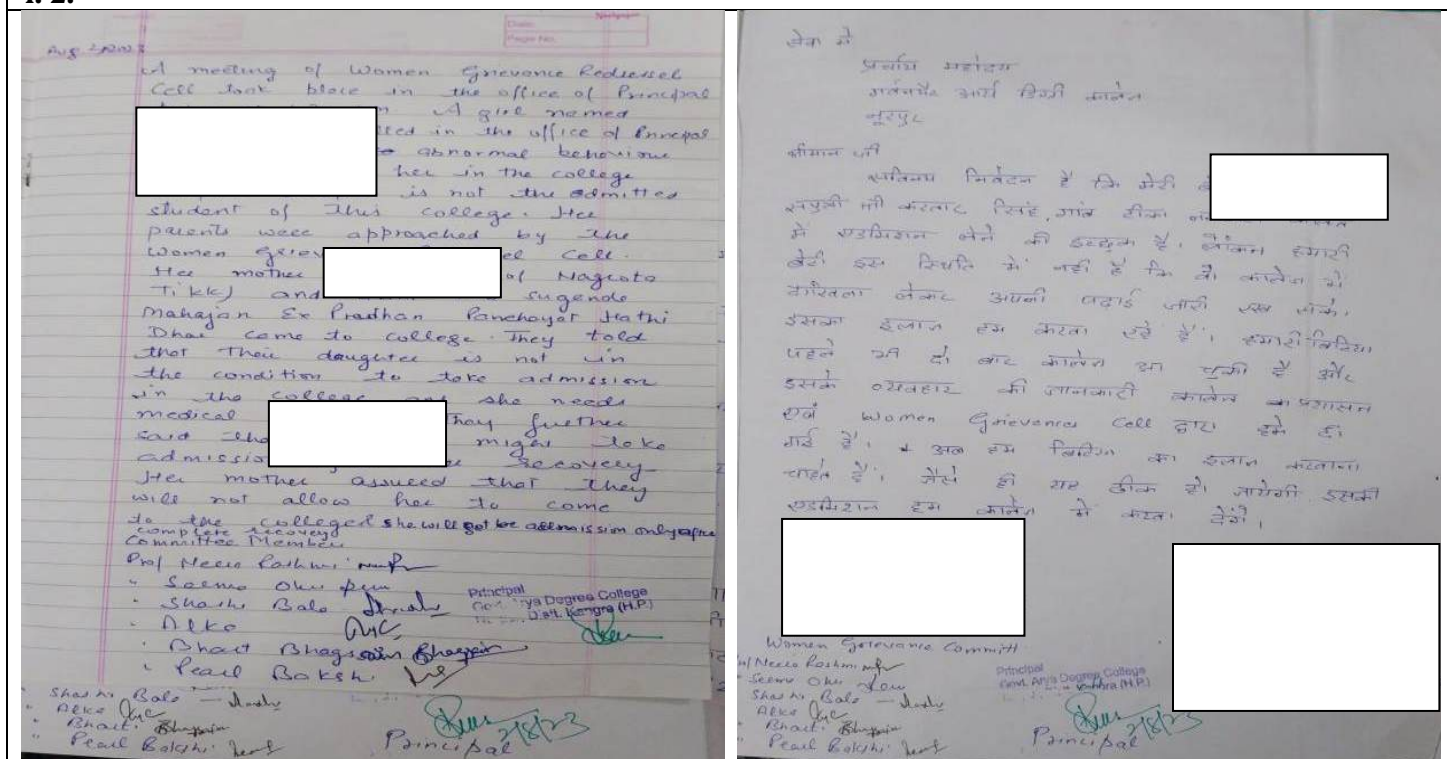 4. 2.
Date:
Page No.
Aug 2, 2023
A meeting of Women Grievance Redressel
Cell took place in the office of Principal
A girl named
in the office of Principal
abnormal behaviour
her in the college
is not the admitted
student of this college. Her
parents were approached by the
Women Cell.
Her mother of Nagrota
Tikk) and sugende
Mahajan Ex Pradhan Panchayat Hathi
Dhar came to college. They told
that their daughter is not in
the condition to take admission
in the college she needs
medical They further
said might take
recovery
Her mother assured that they
will not allow her to come
to the college she will got be admission only after
complete recovery
Committee Member
Prof Neeru Rashmi
" Seema Ohri
" Shashi Bala
" Alka
" Bharti Bhagsain
" Pearl Bakshi
Principal
Govt. Arya Degree College
Distt. Kangra (H.P.)
Shashi Bala
Alka
Bharti
Pearl Bakshi
2/8/23
Principal
सेवा में
प्राचार्य महोदय
गवर्नमैंट आर्य डिग्री कालेज
नूरपुर
श्रीमान जी
सविनय निवेदन है कि मेरी
सपुत्री श्री करतार सिंह, गांव टीका
में एडमिशन लेने की इच्छुक है। लेकिन हमारी
बेटी इस स्थिति में नहीं है कि वो कालेज में
दाखिला लेकर अपनी पढ़ाई जारी रख सके,
इसका इलाज हम करवा रहे हैं। हमारी बिटिया
पहले भी दो बार कालेज आ चुकी है और
इसके व्यवहार की जानकारी कालेज प्रशासन
एवं Women Grievances Cell द्वारा हमें दी
गई है। अब हम बिटिया का इलाज करवाना
चाहते हैं। जैसे ही यह ठीक हो जायेगी इसकी
एडमिशन हम कालेज में करवा देंगे।
Women Grievance Committ
Neeru Rashmi
Seema Ohri
Shashi Bala
Alka
Bharti
Pearl Bakshi
Principal
Govt. Arya Degree College
Kangra (H.P.)
2/8/23
Principal